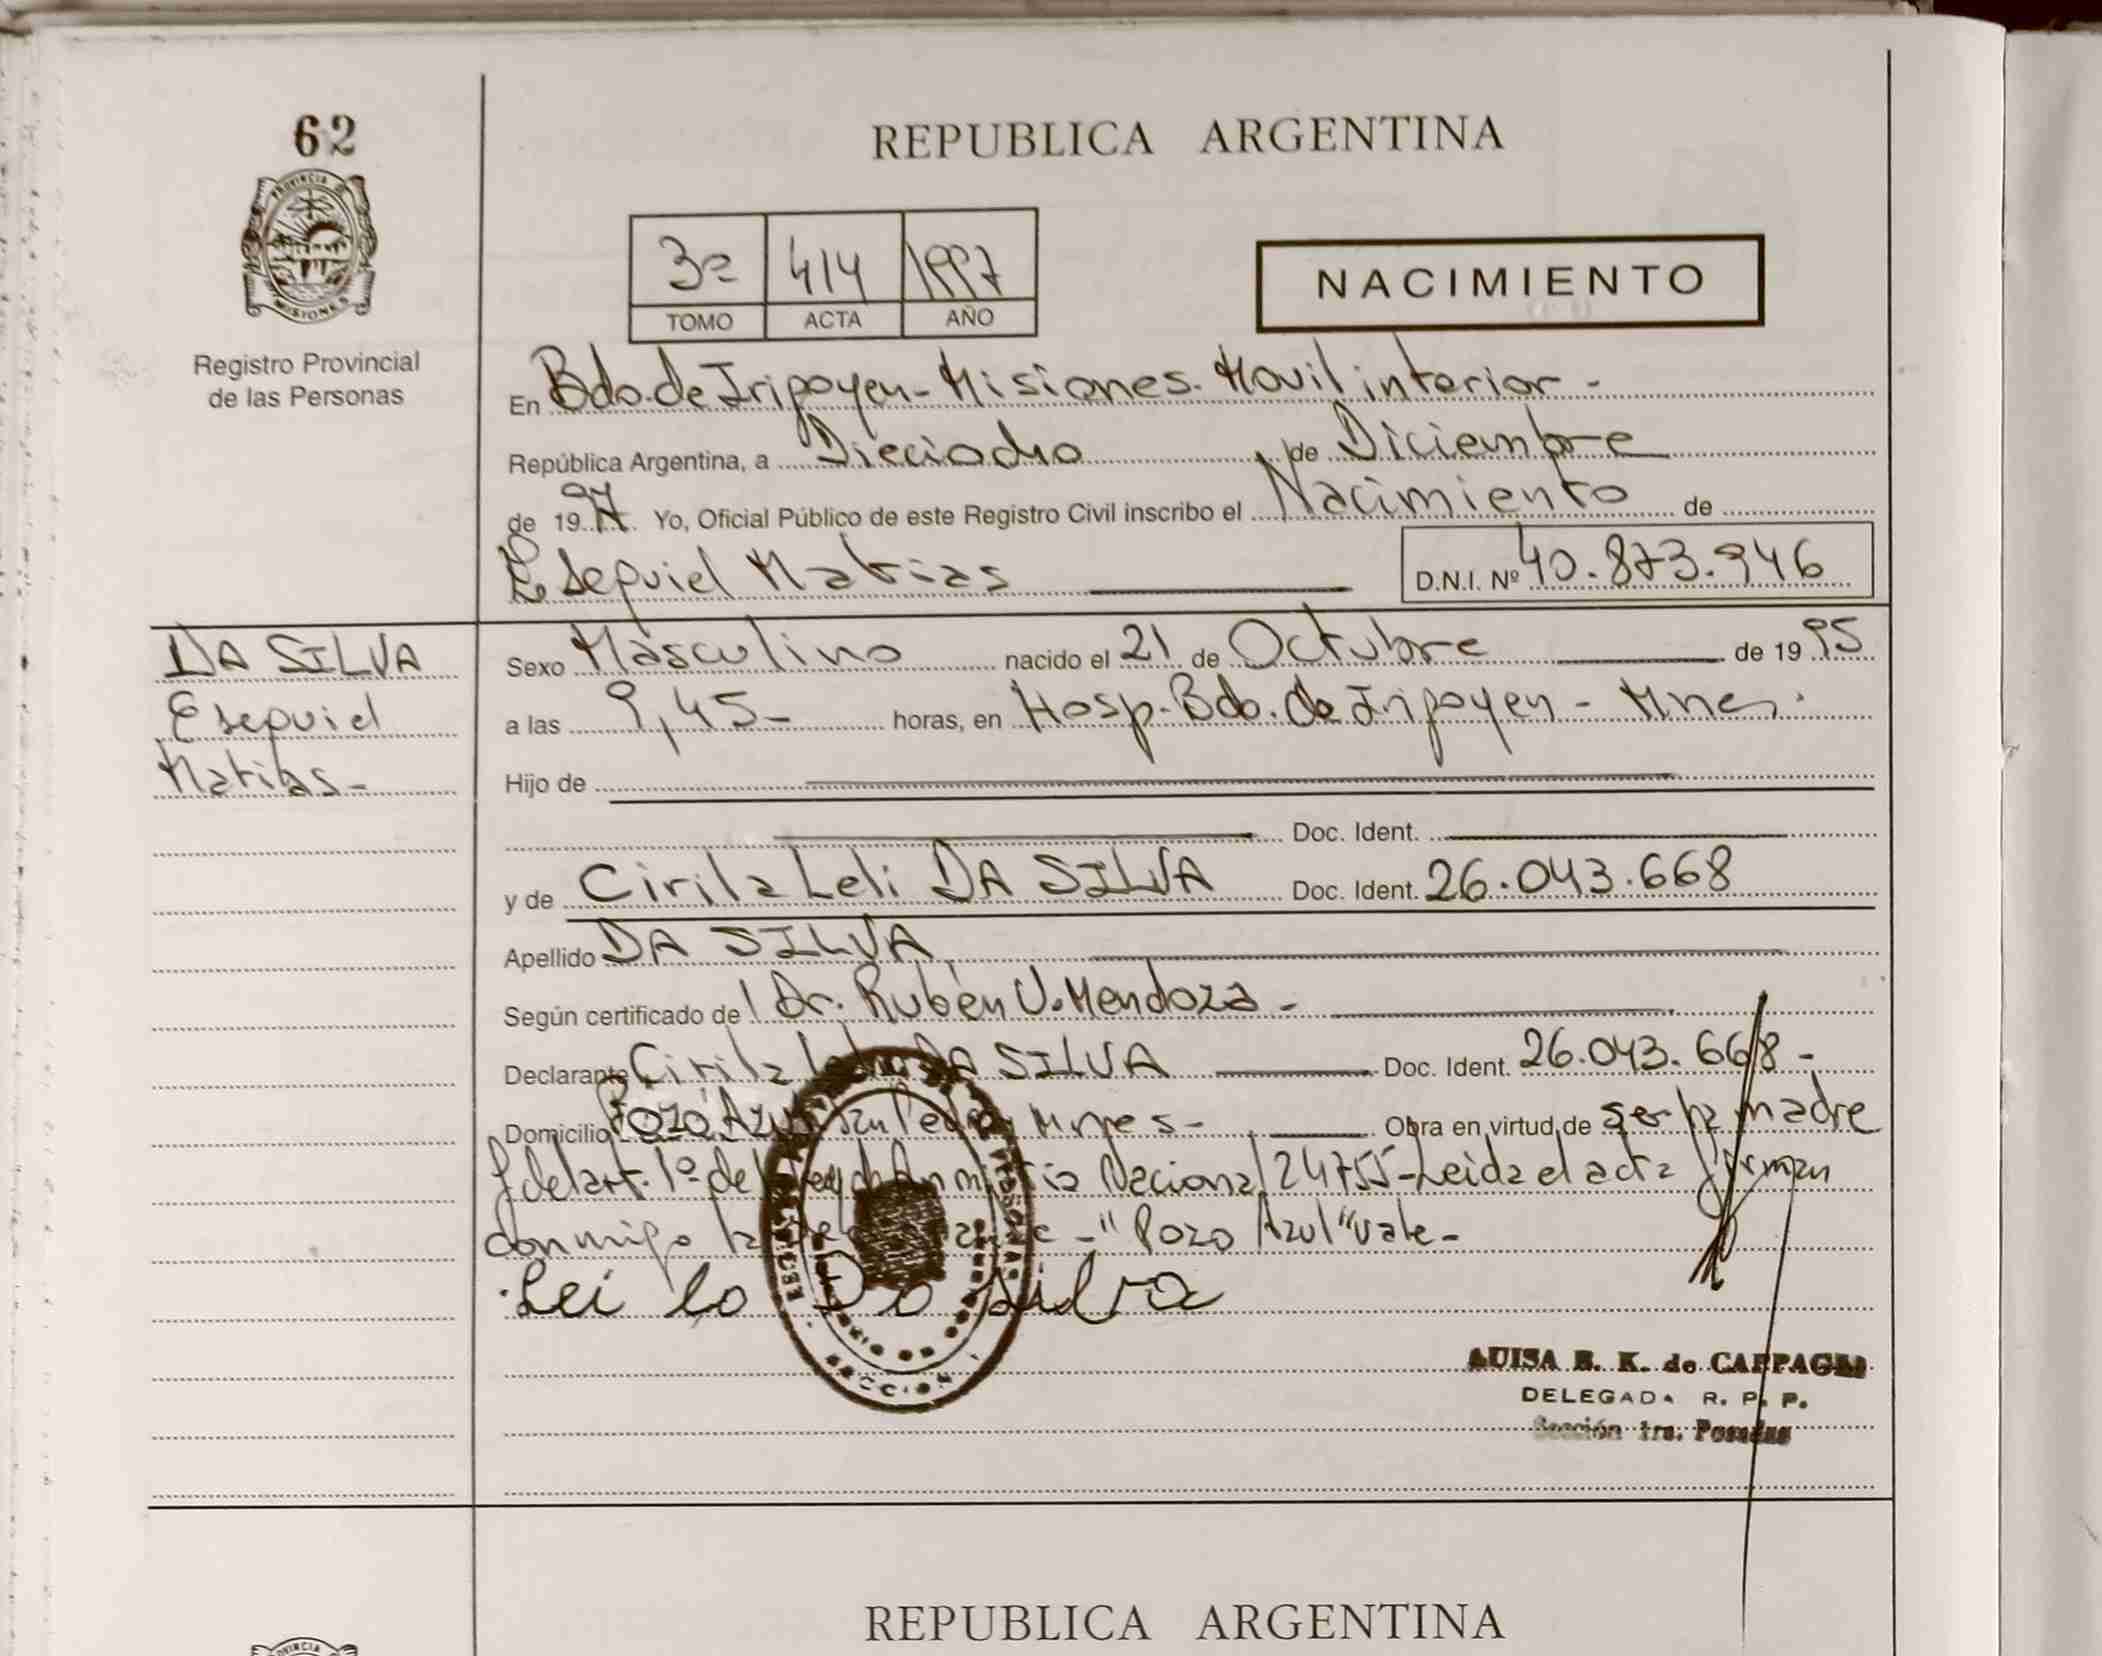 62
REPUBLICA ARGENTINA
PROVINCIA DE MISIONES
Registro Provincial
de las Personas
3º 414 1997
TOMO ACTA AÑO
NACIMIENTO
En Bdo. de Irigoyen - Misiones. Movil interior -
República Argentina, a Dieciocho de Diciembre
de 1997 Yo, Oficial Público de este Registro Civil inscribo el Nacimiento de
Esequiel Matias D.N.I. Nº 40.873.946
DA SILVA
Esequiel
Matias -
Sexo Masculino nacido el 21 de Octubre de 1995
a las 9,45 - horas, en Hosp. Bdo. de Irigoyen - Mnes.
Hijo de
Doc. Ident.
y de Cirila Leli DA SILVA Doc. Ident. 26.043.668
Apellido DA SILVA
Según certificado de Dr. Rubén V. Mendoza -
Declarante Cirila DA SILVA Doc. Ident. 26.043.668 -
Domicilio Pozo Azul San Pedro Mnes - Obra en virtud de ser la madre
y del art. 1º de la Ley de Amnistia Nacional 24755 - Leida el acta firman
conmigo la - "Pozo Azul" vale -
Lei la Da Silva
LUISA B. K. de
DELEGADA R. P. P.
Sección 1ra. Posadas
REPUBLICA ARGENTINA